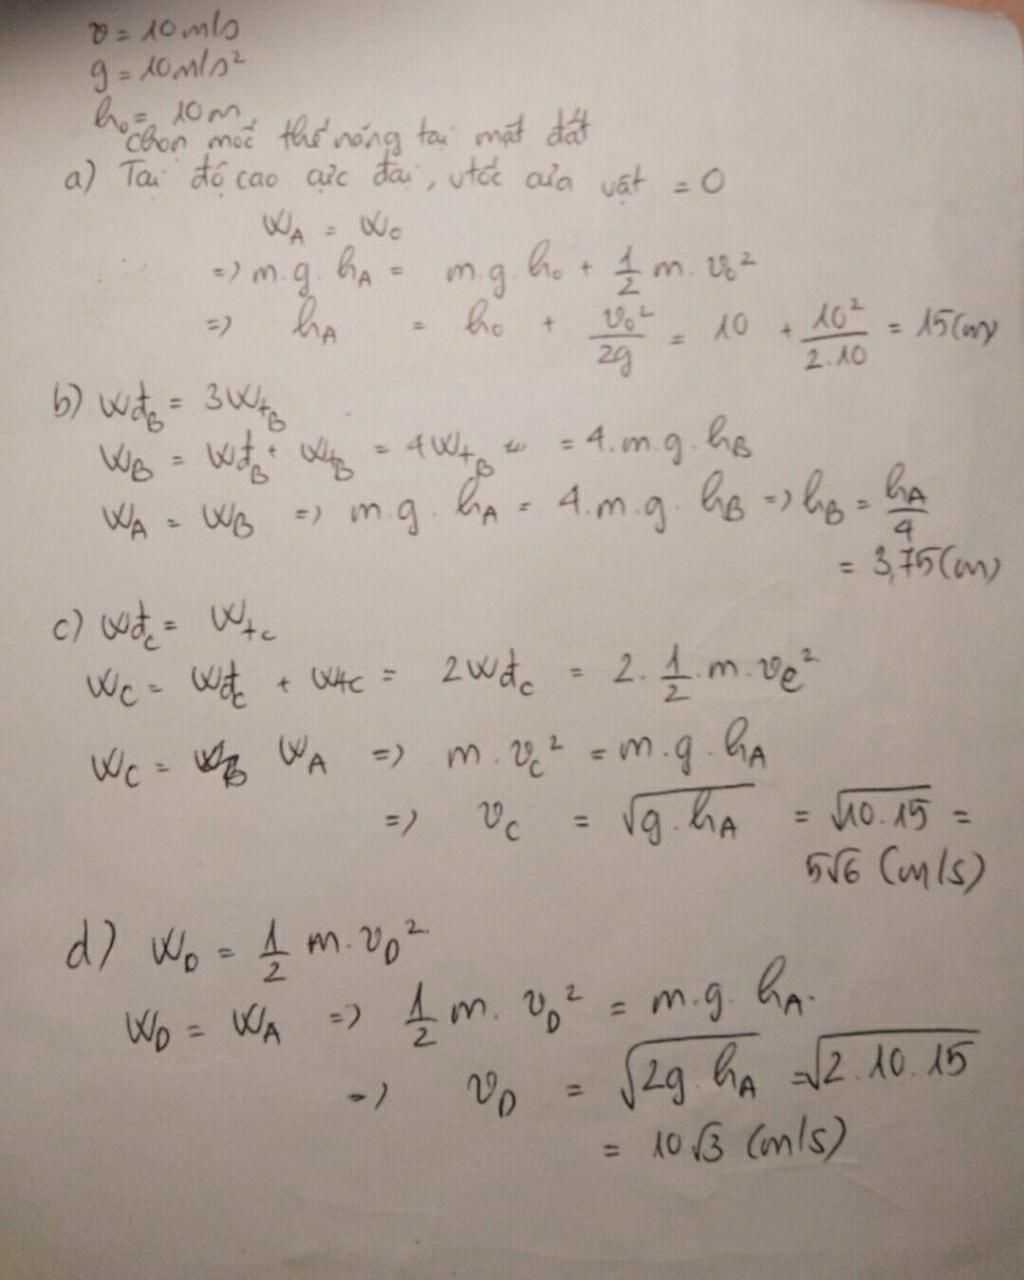 v = 10 m/s
g = 10 m/s²
h₀ = 10 m
chọn mốc thế năng tại mặt đất
a) Tại độ cao cực đại, vtốc của vật = 0
W_A = W₀
=> m.g.h_A = m.g.h₀ + 1/2 m.v₀²
=> h_A = h₀ + v₀²/2g = 10 + 10²/2.10 = 15(m)
b) Wđ_B = 3Wt_B
W_B = Wđ_B + Wt_B = 4Wt_B = 4.m.g.h_B
W_A = W_B => m.g.h_A = 4.m.g.h_B => h_B = h_A/4
= 3,75(m)
c) Wđ_C = Wt_C
W_C = Wđ_C + Wt_C = 2Wđ_C = 2.1/2.m.v_C²
W_C = W_A => m.v_C² = m.g.h_A
=> v_C = √g.h_A = √10.15 =
5√6 (m/s)
d) W_D = 1/2 m.v_D²
W_D = W_A => 1/2 m.v_D² = m.g.h_A.
=> v_D = √2g.h_A = √2.10.15
= 10√3 (m/s)